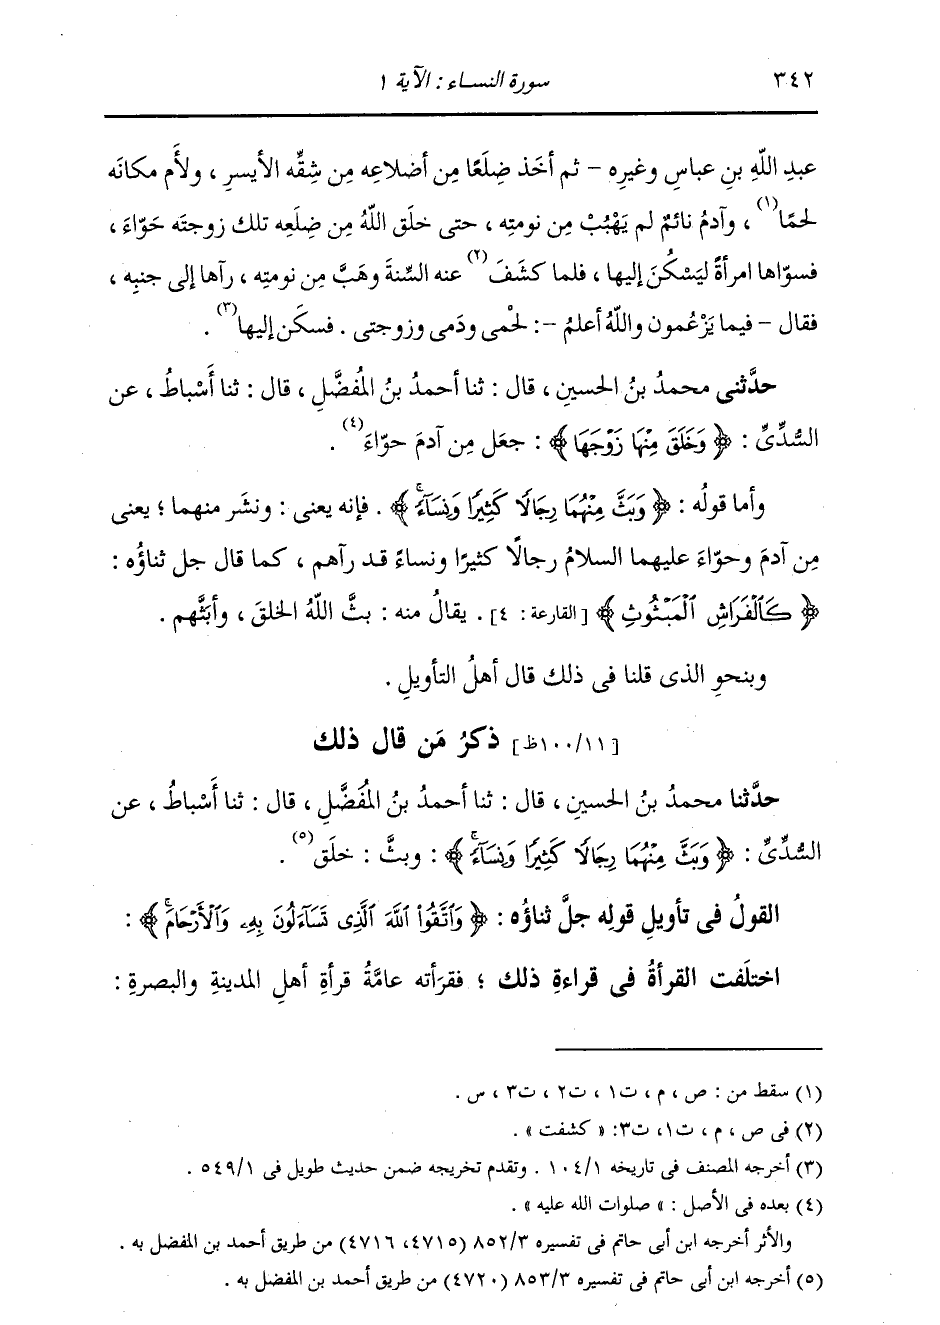 ٣٤٢ سورة النساء : الآية ١
عبدِ اللَّهِ بنِ عباسٍ وغيرِه – ثم أخَذ ضِلَعًا مِن أضلاعِه مِن شِقِّه الأيسرِ ، ولأَم مكانَه
لحمًا(١) ، وآدمُ نائمٌ لم يَهْبُبْ مِن نومتِه ، حتى خلَق اللَّهُ مِن ضِلَعِه تلك زوجتَه حَوّاءَ ،
فسوّاها امرأةً ليَسْكُنَ إليها ، فلما كشَفَ(٢) عنه السِّنةَ وهَبَّ مِن نومتِه ، رآها إلى جنبِه ،
فقال – فيما يَزْعُمون واللَّهُ أعلمُ –: لحْمى ودَمى وزوجتى . فسكَن إليها(٣) .
حدَّثنى محمدُ بنُ الحسينِ ، قال : ثنا أحمدُ بنُ المُفضَّلِ ، قال : ثنا أَسْباطُ ، عن
السُّدِّىِّ : ﴿ وَخَلَقَ مِنْهَا زَوْجَهَا ﴾ : جعَل مِن آدمَ حوّاءَ(٤) .
وأما قولُه : ﴿ وَبَثَّ مِنْهُمَا رِجَالًا كَثِيرًا وَنِسَآءً ﴾ . فإنه يعنى : ونشَر منهما ؛ يعنى
مِن آدمَ وحوّاءَ عليهما السلامُ رجالًا كثيرًا ونساءً قد رآهم ، كما قال جل ثناؤُه :
﴿ كَٱلْفَرَاشِ ٱلْمَبْثُوثِ ﴾ [القارعة: ٤] . يقالُ منه : بثَّ اللَّهُ الخلقَ ، وأبَثَّهم .
وبنحوِ الذى قلنا فى ذلك قال أهلُ التأويلِ .
[١٠٠/١١ظ] ذكرُ مَن قال ذلك
حدَّثنا محمدُ بنُ الحسينِ ، قال : ثنا أحمدُ بنُ المُفَضَّلِ ، قال : ثنا أَسْباطُ ، عن
السُّدِّىِّ : ﴿ وَبَثَّ مِنْهُمَا رِجَالًا كَثِيرًا وَنِسَآءً ﴾ : وبثَّ : خلَق(٥) .
القولُ فى تأويلِ قولِه جلَّ ثناؤُه : ﴿ وَٱتَّقُوا۟ ٱللَّهَ ٱلَّذِى تَسَآءَلُونَ بِهِۦ وَٱلْأَرْحَامَ ﴾ :
اختلَفت القرأةُ فى قراءةِ ذلك ؛ فقرَأته عامَّةُ قرأةِ أهلِ المدينةِ والبصرةِ :
(١) سقط من : ص ، م ، ت١ ، ت٢ ، ت٣ ، س .
(٢) فى ص ، م ، ت١، ت٣: « كشفت » .
(٣) أخرجه المصنف فى تاريخه ١٠٤/١ . وتقدم تخريجه ضمن حديث طويل فى ٥٤٩/١ .
(٤) بعده فى الأصل : « صلوات الله عليه » .
والأثر أخرجه ابن أبى حاتم فى تفسيره ٨٥٢/٣ (٤٧١٥، ٤٧١٦) من طريق أحمد بن المفضل به .
(٥) أخرجه ابن أبى حاتم فى تفسيره ٨٥٣/٣ (٤٧٢٠) من طريق أحمد بن المفضل به .